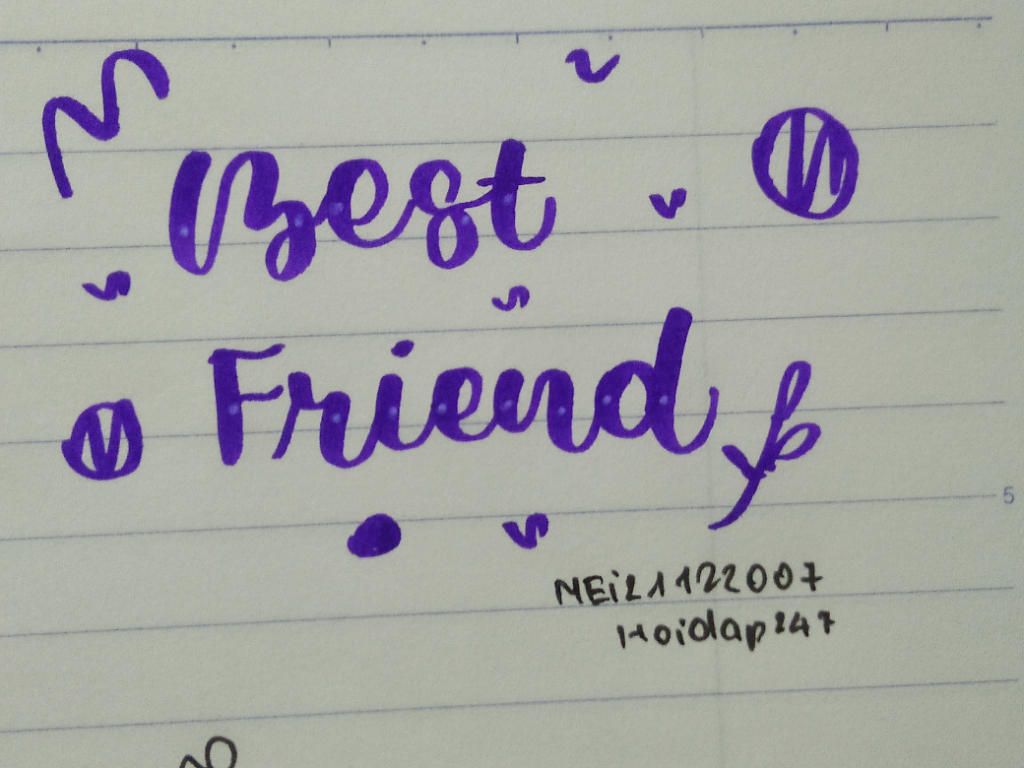 Best
Friend
5
MEi21122007
Hoidap247